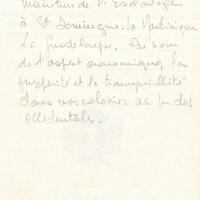 Maintien de l'Esclavage
à St Domingue. la Martinique
La Guadeloupe. Au nom
de l'aspect économique, la
prospérité et la tranquillité
dans nos colonies des Indes
Occidentales.